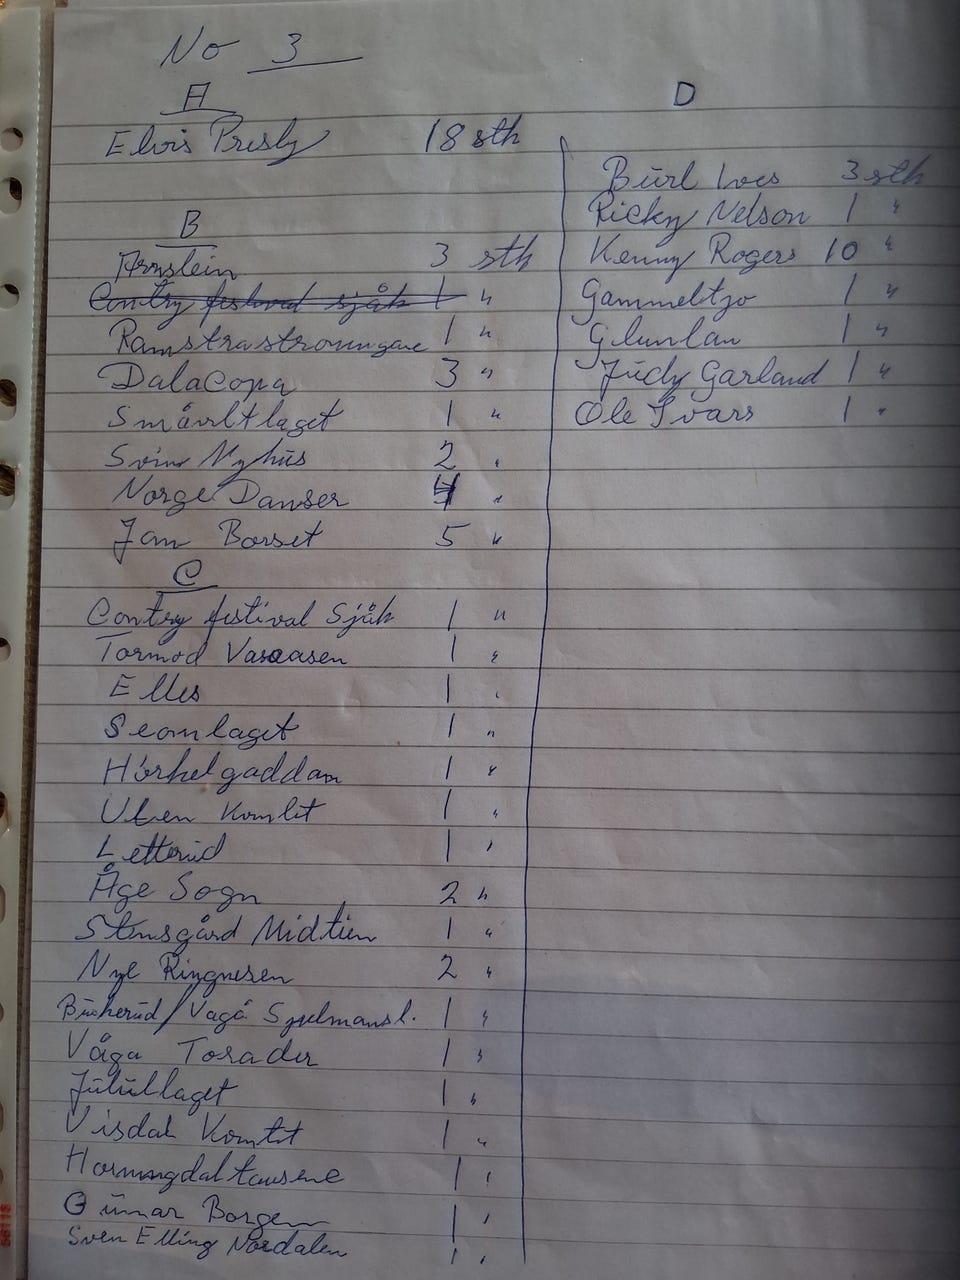 No 3
A
Elvis Presly 18 sth
B
Arnstein 3 sth
Contry festival sjåk 1 "
Ramstrastroningane 1 "
DalaCopa 3 "
Småviltlaget 1 "
Svein Nyhus 2 "
Norge Danser 4 "
Jan Borset 5 "
C
Contry festival Sjåk 1 "
Tormod Vasaasen 1 "
Elles 1 "
Seomlaget 1 "
Hörkelgaddan 1 "
Uten Komlit 1 "
Letterud 1 "
Åge Sogn 2 "
Stensgård Midtien 1 "
Nye Ringnesen 2 "
Buskerud/Vagå Spelmansl. 1 "
Våga Torader 1 "
Jutullaget 1 "
Visdal Komtit 1 "
Horningdaltausene 1 "
Gunnar Borgen 1 "
Sven Elling Nordalen 1 "
D
Burl Ives 3 sth
Ricky Nelson 1 "
Kenny Rogers 10 "
Gammeltzo 1 "
Glunlan 1 "
Judy Garland 1 "
Ole Ivars 1 "